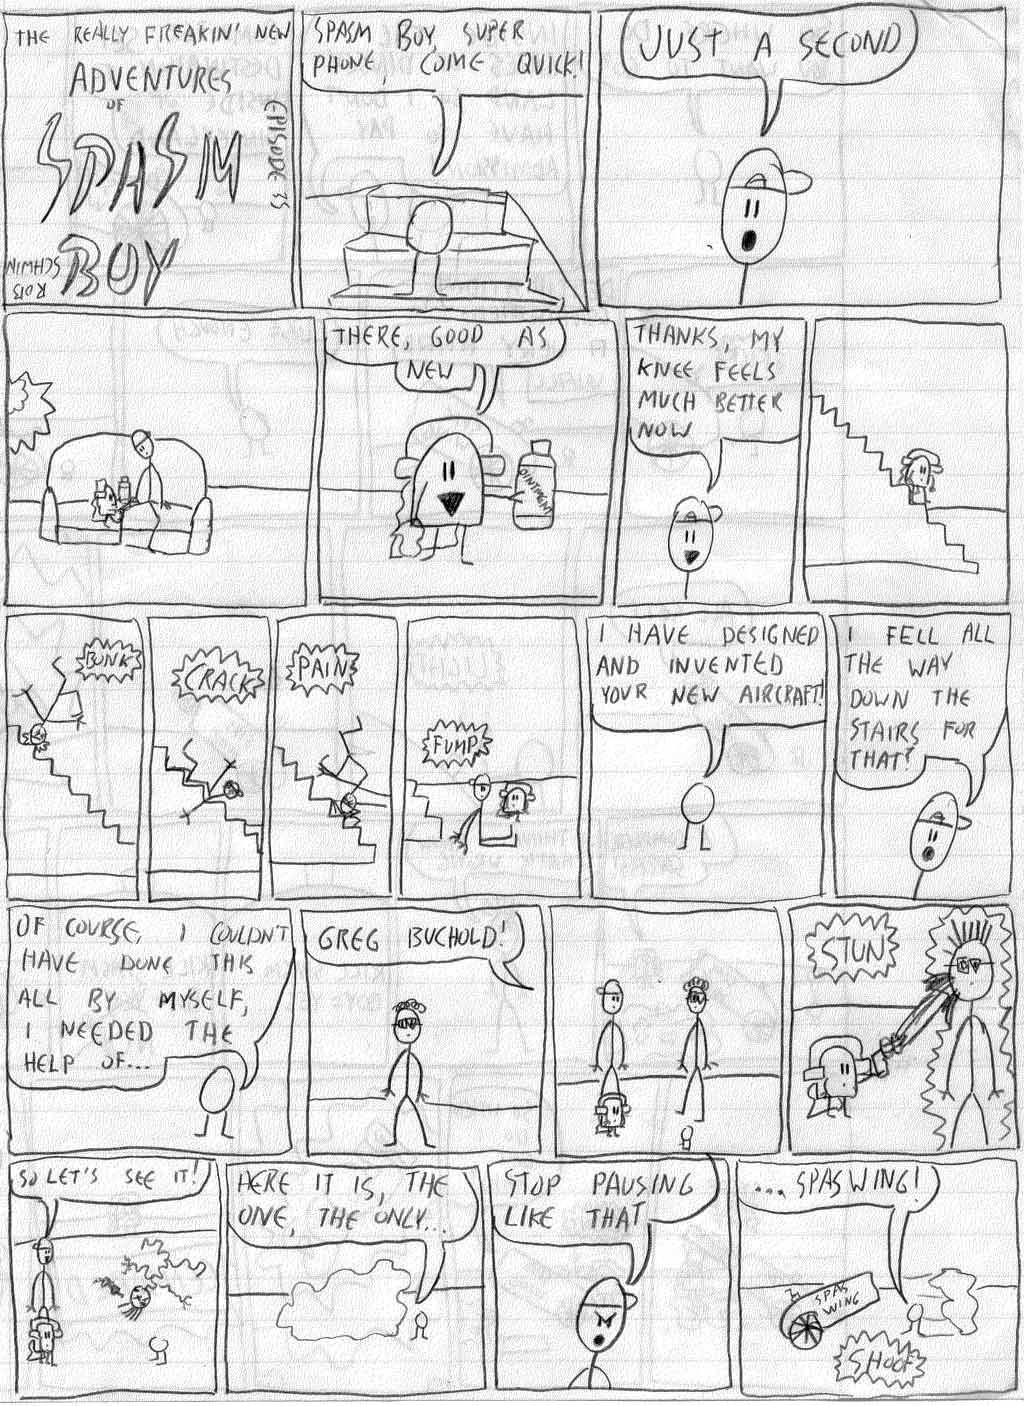 THE REALLY FREAKIN' NEW
ADVENTURES
OF
SPASM
BOY
EPISODE 35
ROB
SCHWIN
SPASM BOY, SUPER
PHONE, COME QUICK!
JUST A SECOND
THERE, GOOD AS
NEW
OINTMENT
THANKS, MY
KNEE FEELS
MUCH BETTER
NOW
BONK
CRACK
PAIN
FUMP
I HAVE DESIGNED
AND INVENTED
YOUR NEW AIRCRAFT!
I FELL ALL
THE WAY
DOWN THE
STAIRS FOR
THAT?
OF COURSE, I COULDN'T
HAVE DONE THIS
ALL BY MYSELF,
I NEEDED THE
HELP OF...
GREG BUCHOLD!
STUN
SO LET'S SEE IT!
HERE IT IS, THE
ONE, THE ONLY...
STOP PAUSING
LIKE THAT
...SPASWING!
SPAS
WING
SHOOF